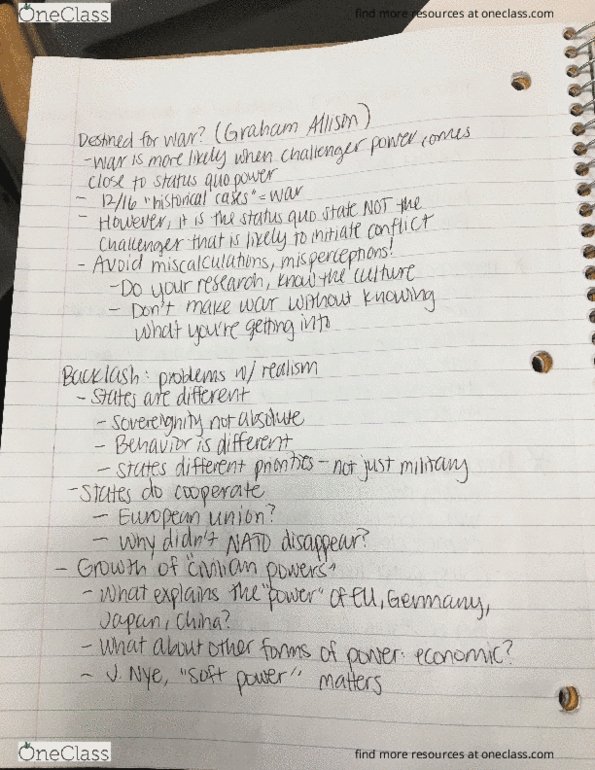 OneClass
find more resources at oneclass.com
Destined for war? (Graham Allison)
- War is more likely when challenger power comes
close to status quo power
- 12/16 "historical cases" = war
- However, it is the status quo state NOT the
challenger that is likely to initiate conflict
- Avoid miscalculations, misperceptions!
- Do your research, know the culture
- Don't make war without knowing
what you're getting into
Backlash: problems w/ realism
- States are different
- Sovereignity not absolute
- Behavior is different
- States different priorities - not just military
- States do cooperate
- European union?
- Why didn't NATO disappear?
- Growth of "civilian powers"
- What explains the "power" of EU, Germany,
Japan, China?
- What about other forms of power: economic?
- J. Nye, "soft power" matters
OneClass
find more resources at oneclass.com